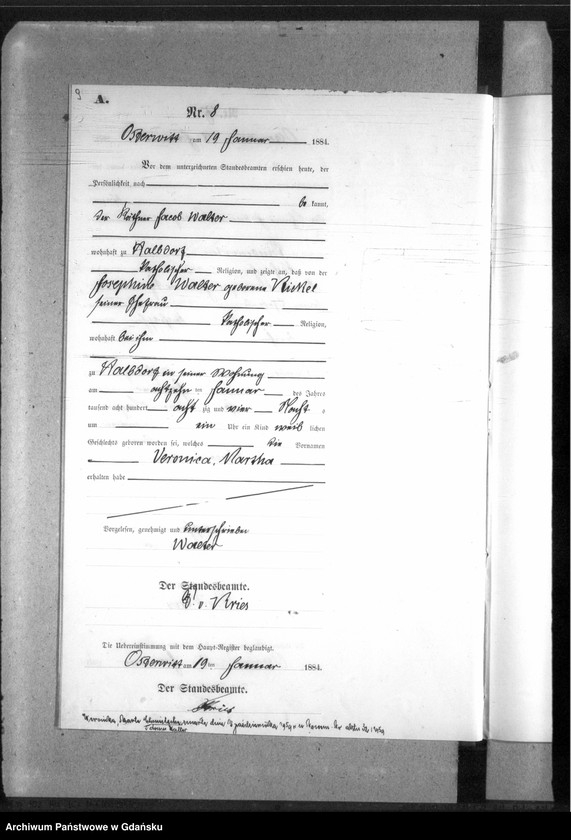 9
A.
Nr. 8
Osterwitt am 19 Januar 1884.
Vor dem unterzeichneten Standesbeamten erschien heute, der
Persönlichkeit nach
be kannt,
der Käthner Jacob Walter
wohnhaft zu Kalbdorf
katholischer Religion, und zeigte an, daß von der
Josephine Walter geborene
seiner Ehefrau
katholischer Religion,
wohnhaft bei ihm
zu Kalbdorf in seiner Wohnung
am achtzehn ten Januar des Jahres
tausend acht hundert acht zig und vier Nachts
um ein Uhr ein Kind weib lichen
Geschlechts geboren worden sei, welches die Vornamen
Veronica, Martha
erhalten habe
Vorgelesen, genehmigt und unterschrieben
Walter
Der Standesbeamte.
v. Kries
Die Uebereinstimmung mit dem Haupt-Register beglaubigt.
Osterwitt am 19 ten Januar 1884.
Der Standesbeamte.
Kries
Marta zmarła dnia października w
z domu Walter
Archiwum Państwowe w Gdańsku